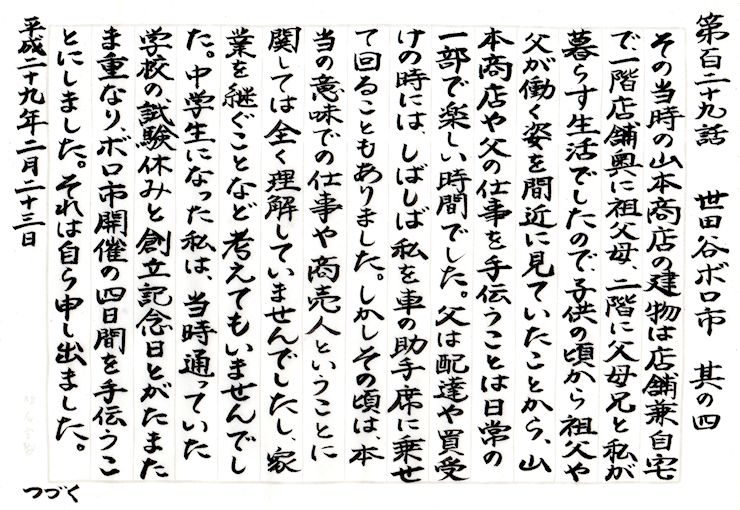 第百二十九話　世田谷ボロ市　其の四
その当時の山本商店の建物は店舗兼自宅
で、一階店舗奥に祖父母、二階に父母兄と私が
暮らす生活でしたので、子供の頃から祖父や
父が働く姿を間近に見ていたことから、山
本商店や父の仕事を手伝うことは日常の
一部で楽しい時間でした。父は配達や買受
けの時には、しばしば私を車の助手席に乗せ
て回ることもありました。しかしその頃は、本
当の意味での仕事や商売人ということに
関しては全く理解していませんでしたし、家
業を継ぐことなど考えてもいませんでし
た。中学生になった私は、当時通っていた
学校の試験休みと創立記念日とがたまた
ま重なり、ボロ市開催の四日間を手伝うこ
とにしました。それは自ら申し出ました。
平成二十九年二月二十三日
つづく